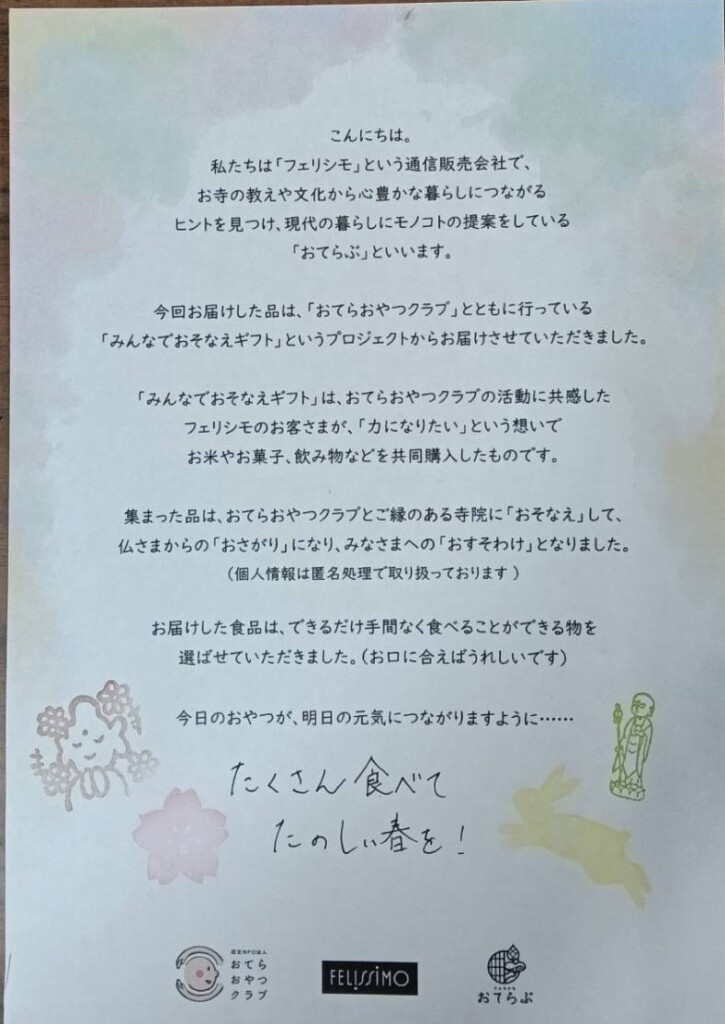 こんにちは。
私たちは「フェリシモ」という通信販売会社で、
お寺の教えや文化から心豊かな暮らしにつながる
ヒントを見つけ、現代の暮らしにモノコトの提案をしている
「おてらぶ」といいます。
今回お届けした品は、「おてらおやつクラブ」とともに行っている
「みんなでおそなえギフト」というプロジェクトからお届けさせていただきました。
「みんなでおそなえギフト」は、おてらおやつクラブの活動に共感した
フェリシモのお客さまが、「力になりたい」という想いで
お米やお菓子、飲み物などを共同購入したものです。
集まった品は、おてらおやつクラブとご縁のある寺院に「おそなえ」して、
仏さまからの「おさがり」になり、みなさまへの「おすそわけ」となりました。
(個人情報は匿名処理で取り扱っております)
お届けした食品は、できるだけ手間なく食べることができる物を
選ばせていただきました。(お口に合えばうれしいです)
今日のおやつが、明日の元気につながりますように……
たくさん食べて
たのしい春を!
認定NPO法人
おてら
おやつ
クラブ
FELISSIMO
おてらぶ